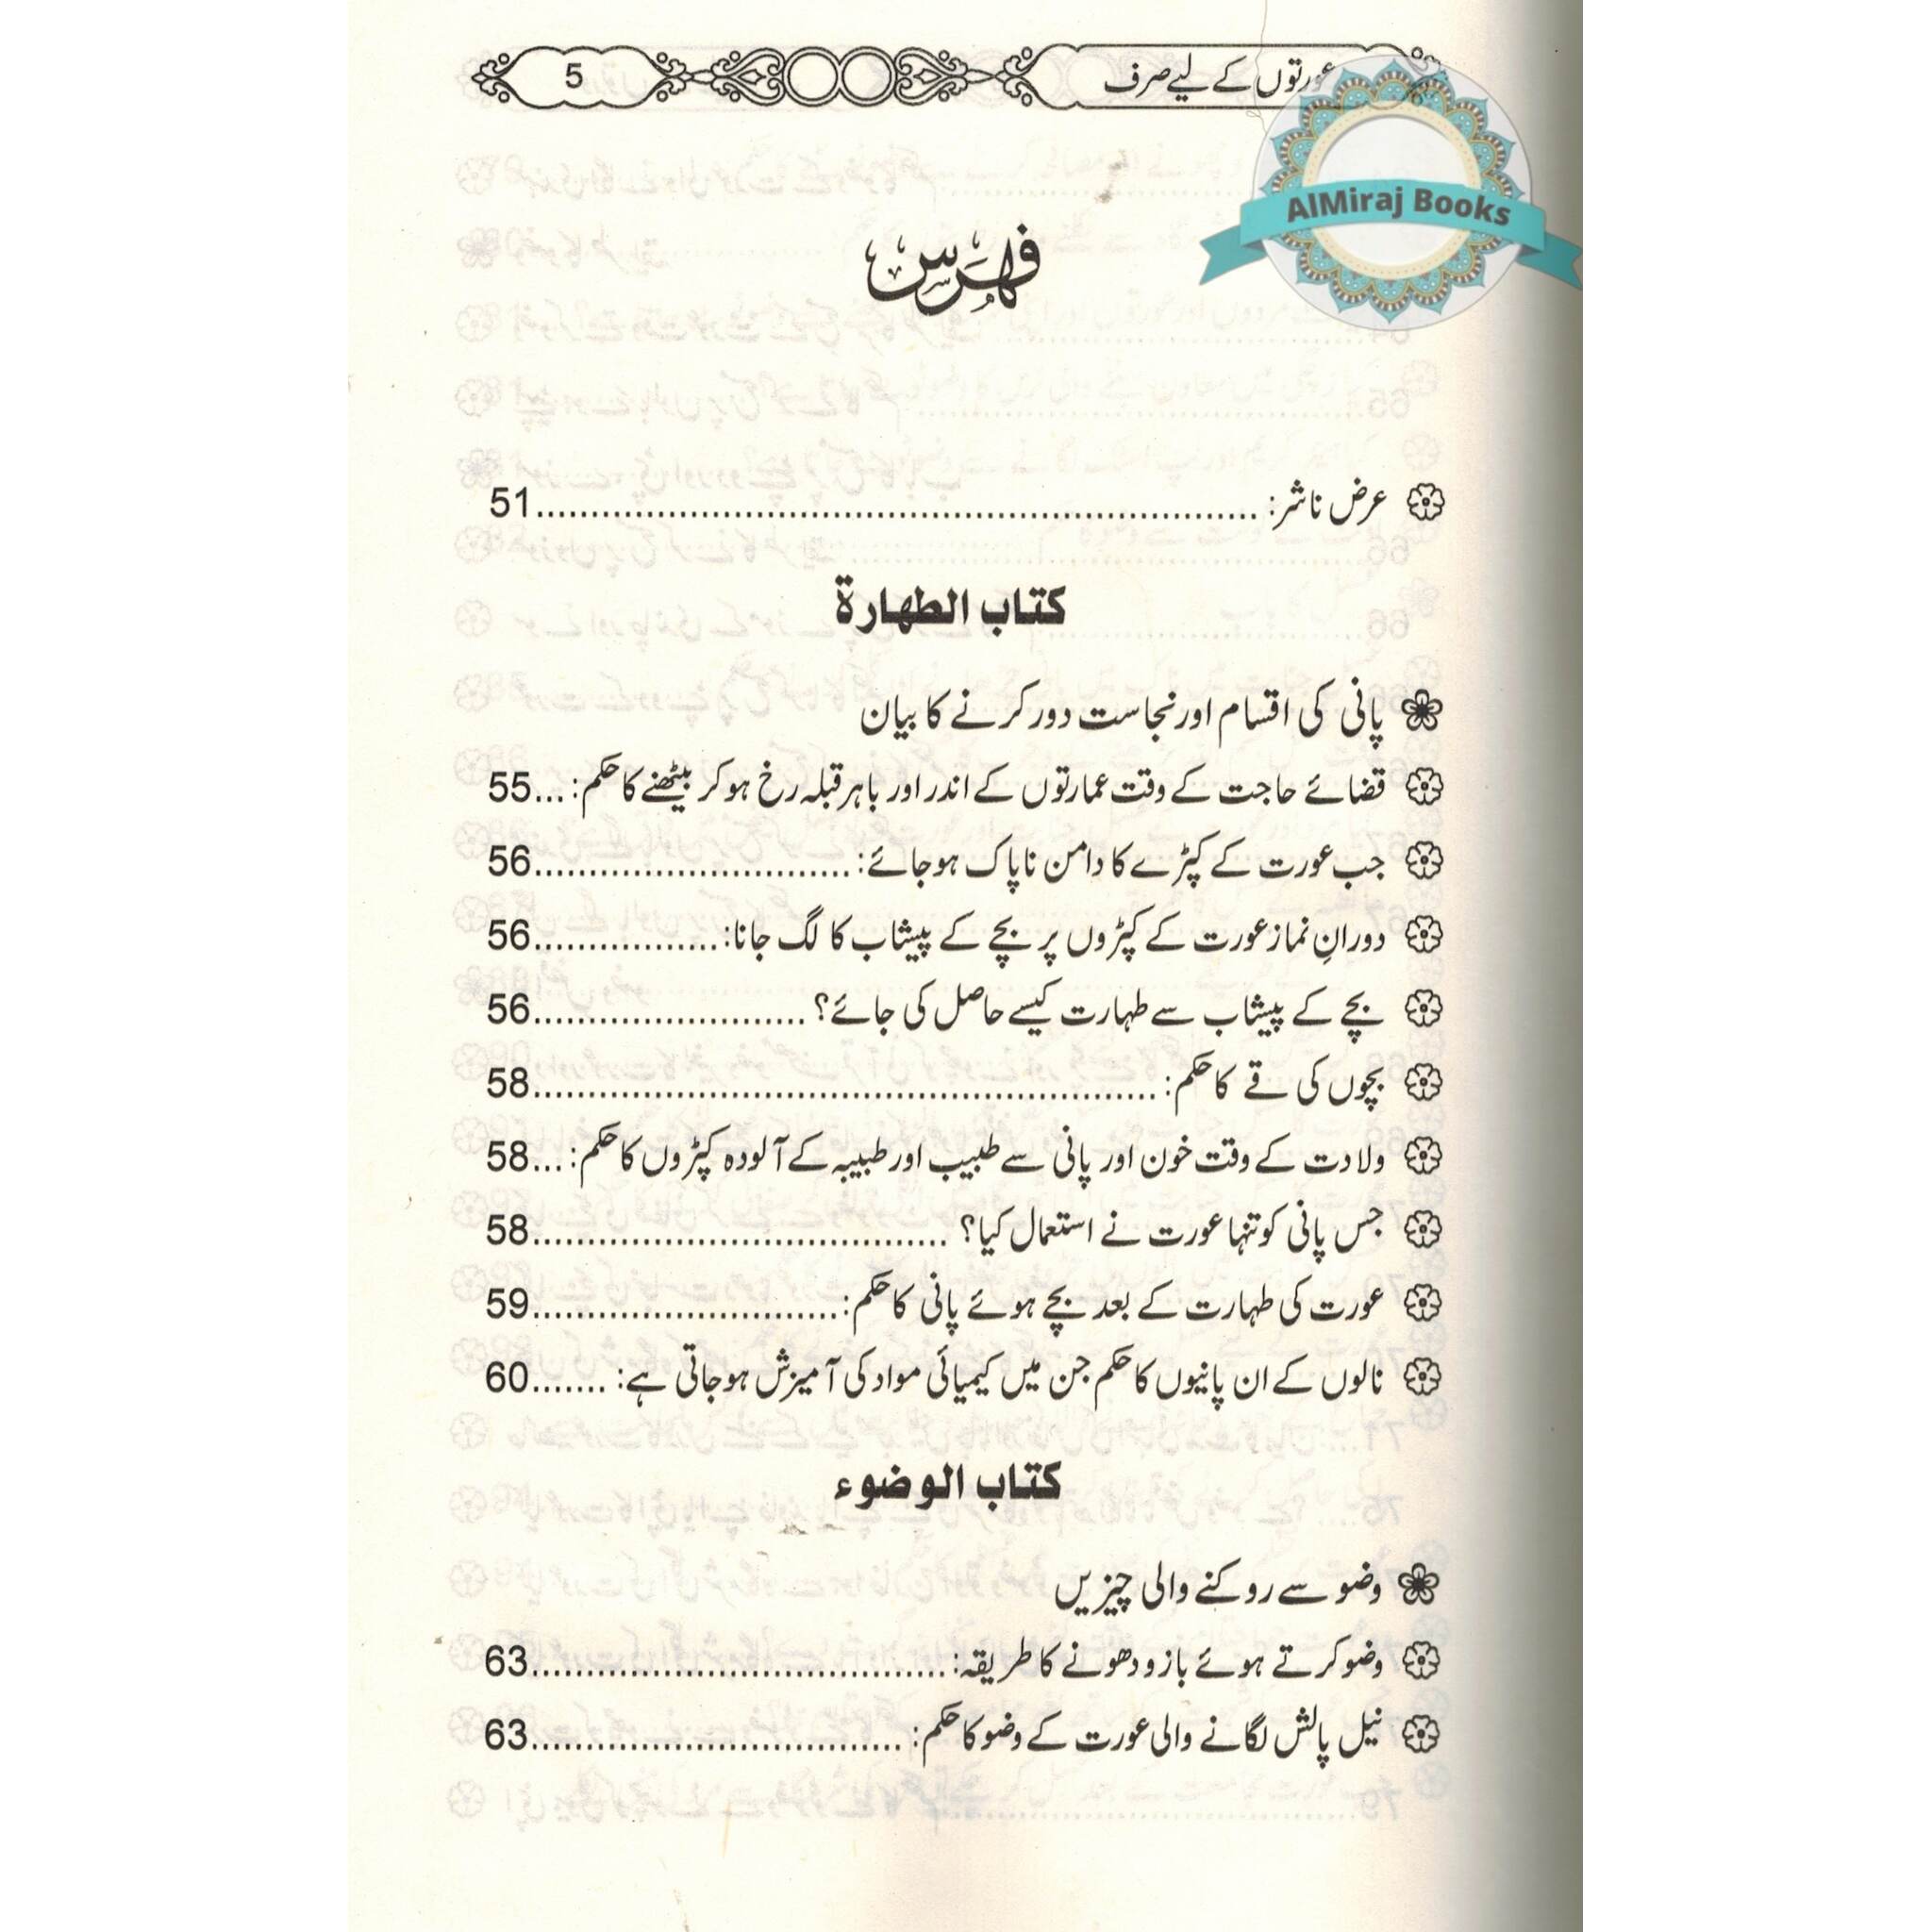 عورتوں کے لیے صرف
5
AlMiraj Books
فہرس
عرض ناشر: ........ 51
کتاب الطھارۃ
پانی کی اقسام اور نجاست دور کرنے کا بیان
قضائے حاجت کے وقت عمارتوں کے اندر اور باہر قبلہ رخ ہو کر بیٹھنے کا حکم: ... 55
جب عورت کے کپڑے کا دامن ناپاک ہو جائے: ........ 56
دورانِ نماز عورت کے کپڑوں پر بچے کے پیشاب کا لگ جانا: ........ 56
بچے کے پیشاب سے طہارت کیسے حاصل کی جائے؟ ........ 56
بچوں کی قے کا حکم: ........ 58
ولادت کے وقت خون اور پانی سے طبیب اور طبیبہ کے آلودہ کپڑوں کا حکم: ... 58
جس پانی کو تنہا عورت نے استعمال کیا؟ ........ 58
عورت کی طہارت کے بعد بچے ہوئے پانی کا حکم: ........ 59
نالوں کے ان پانیوں کا حکم جن میں کیمیائی مواد کی آمیزش ہو جاتی ہے: ....... 60
کتاب الوضوء
وضو سے روکنے والی چیزیں
وضو کرتے ہوئے بازو دھونے کا طریقہ: ........ 63
نیل پالش لگانے والی عورت کے وضو کا حکم: ........ 63